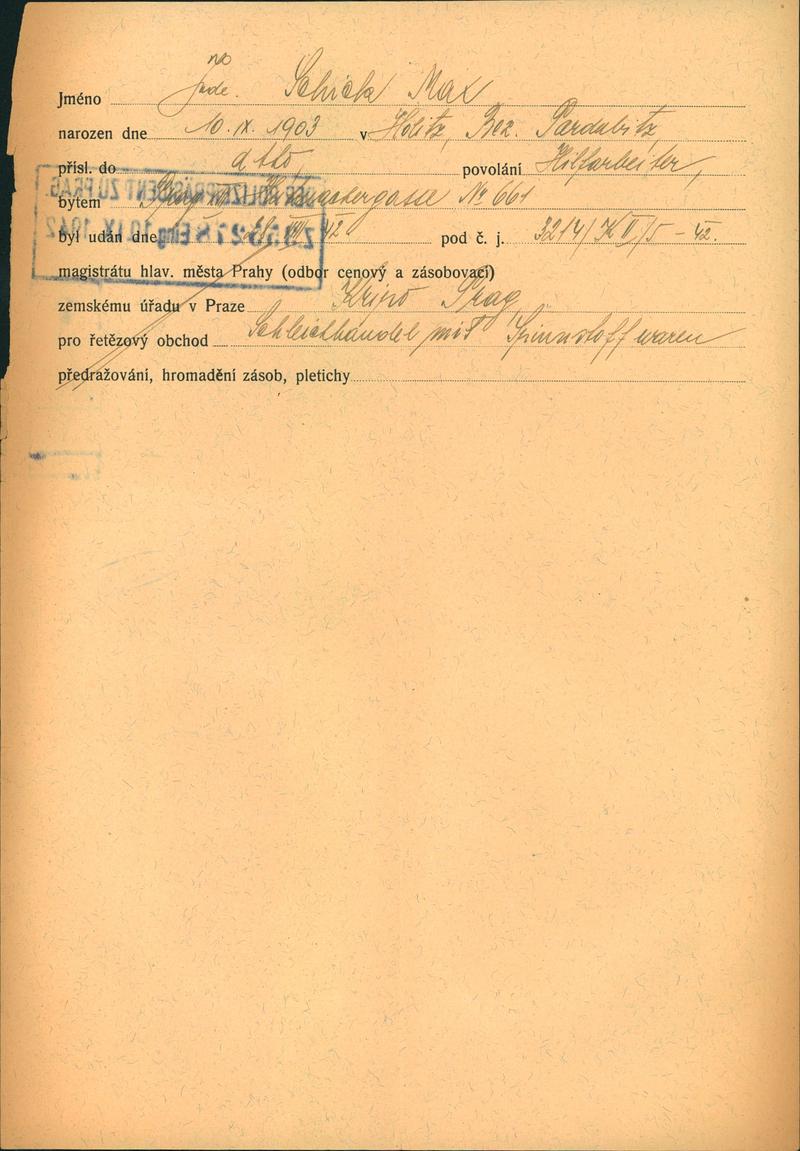 no
Jméno jude. Schick Max
narozen dne 10. IX. 1903 v Holitz, Bez. Pardubitz
přísl. do dtto povolání Hilfarbeiter,
DER POLIZEIPRÄSIDENT ZU PRAG
bytem Prag № 661
Eing 10. IX. 1942
byl udán dne VIII 42 pod č. j. 3214/K II/5 - 42.
magistrátu hlav. města Prahy (odbor cenový a zásobovací)
zemskému úřadu v Praze Kripo Prag
pro řetězový obchod Schleichhandel mit Spinnstoffwaren
předražování, hromadění zásob, pletichy